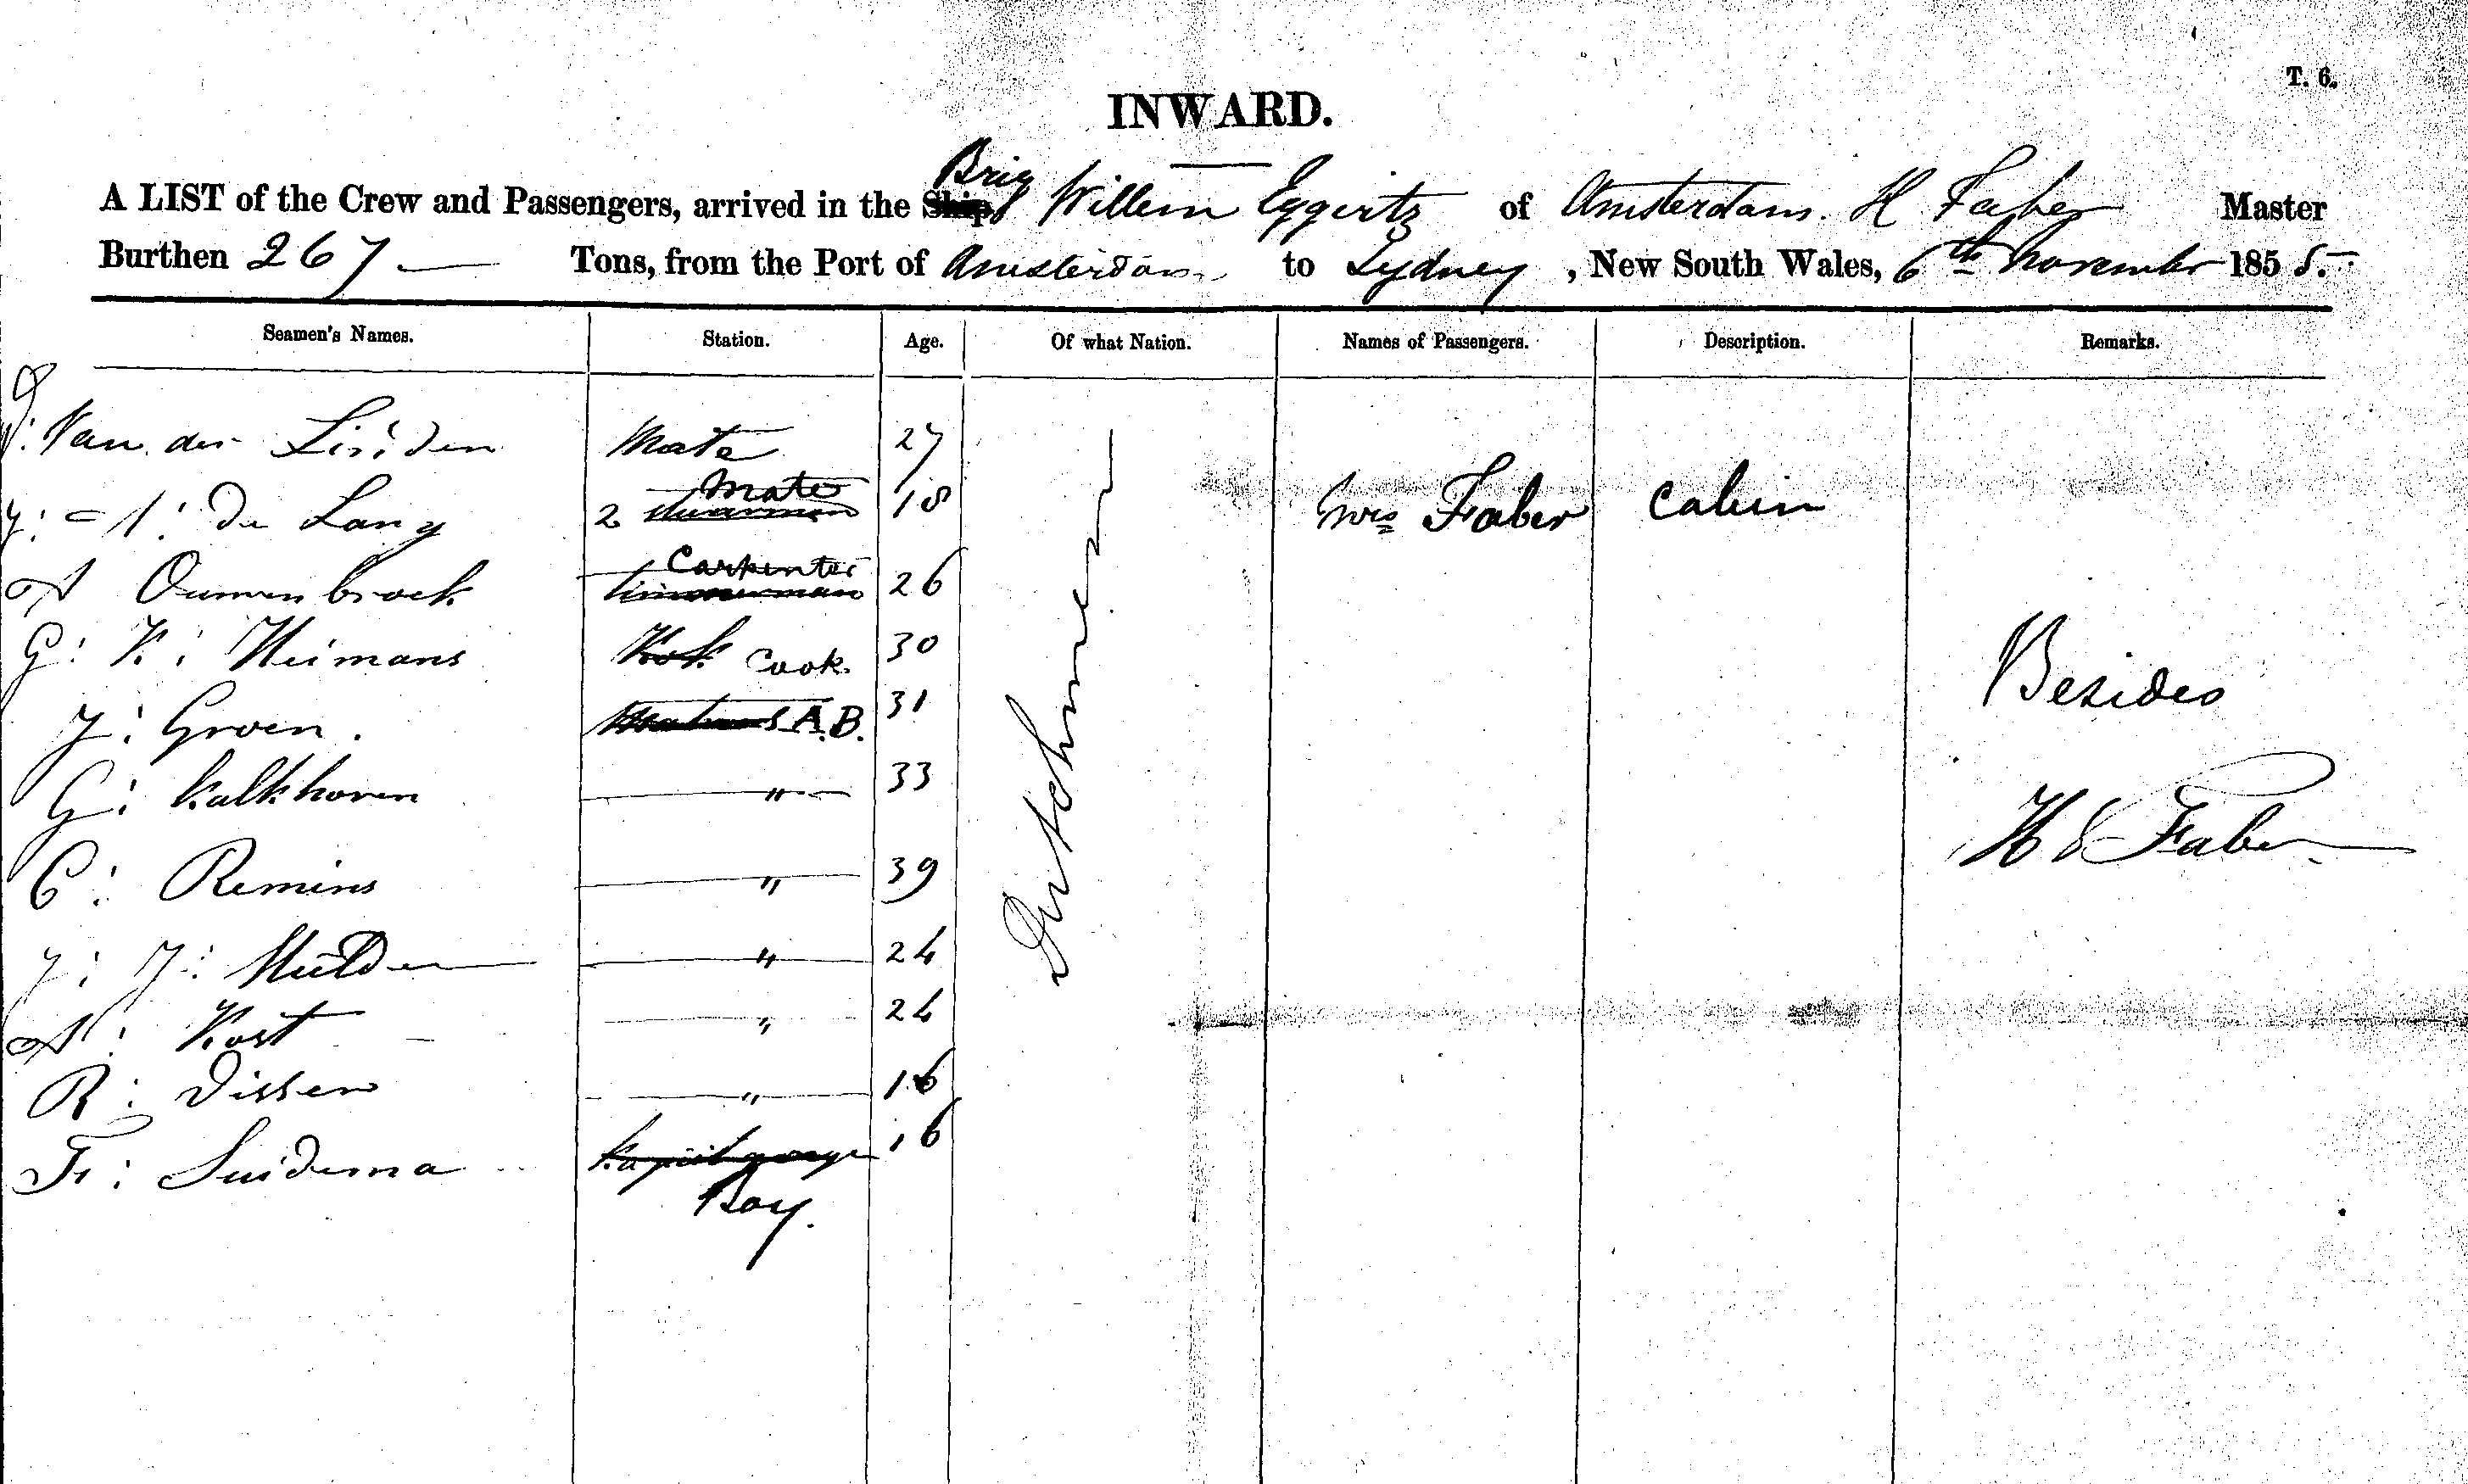 T. 6.
INWARD.
A LIST of the Crew and Passengers, arrived in the Ship Brig Willem Eggertz of Amsterdam. H Faber Master
Burthen 267 Tons, from the Port of Amsterdam to Sydney, New South Wales, 6th November 1855.
Seamen's Names. Station. Age. Of what Nation. Names of Passengers. Description. Remarks.
Van der Linden Mate 27
De Lang 2 Mate 18 Mrs Faber Cabin
A Oumenbroek Carpenter timmerman 26
G: K: Heimans Kok Cook 30
J: Groen. Matroos A.B. 31
G: Kalkhoven " 33
C: Remins " 39
J: J: Mulder " 24
A: Kost " 24
R: Visser " 16
Fr: Suidema Boy. 16
Dutchmen
Besides
H Faber